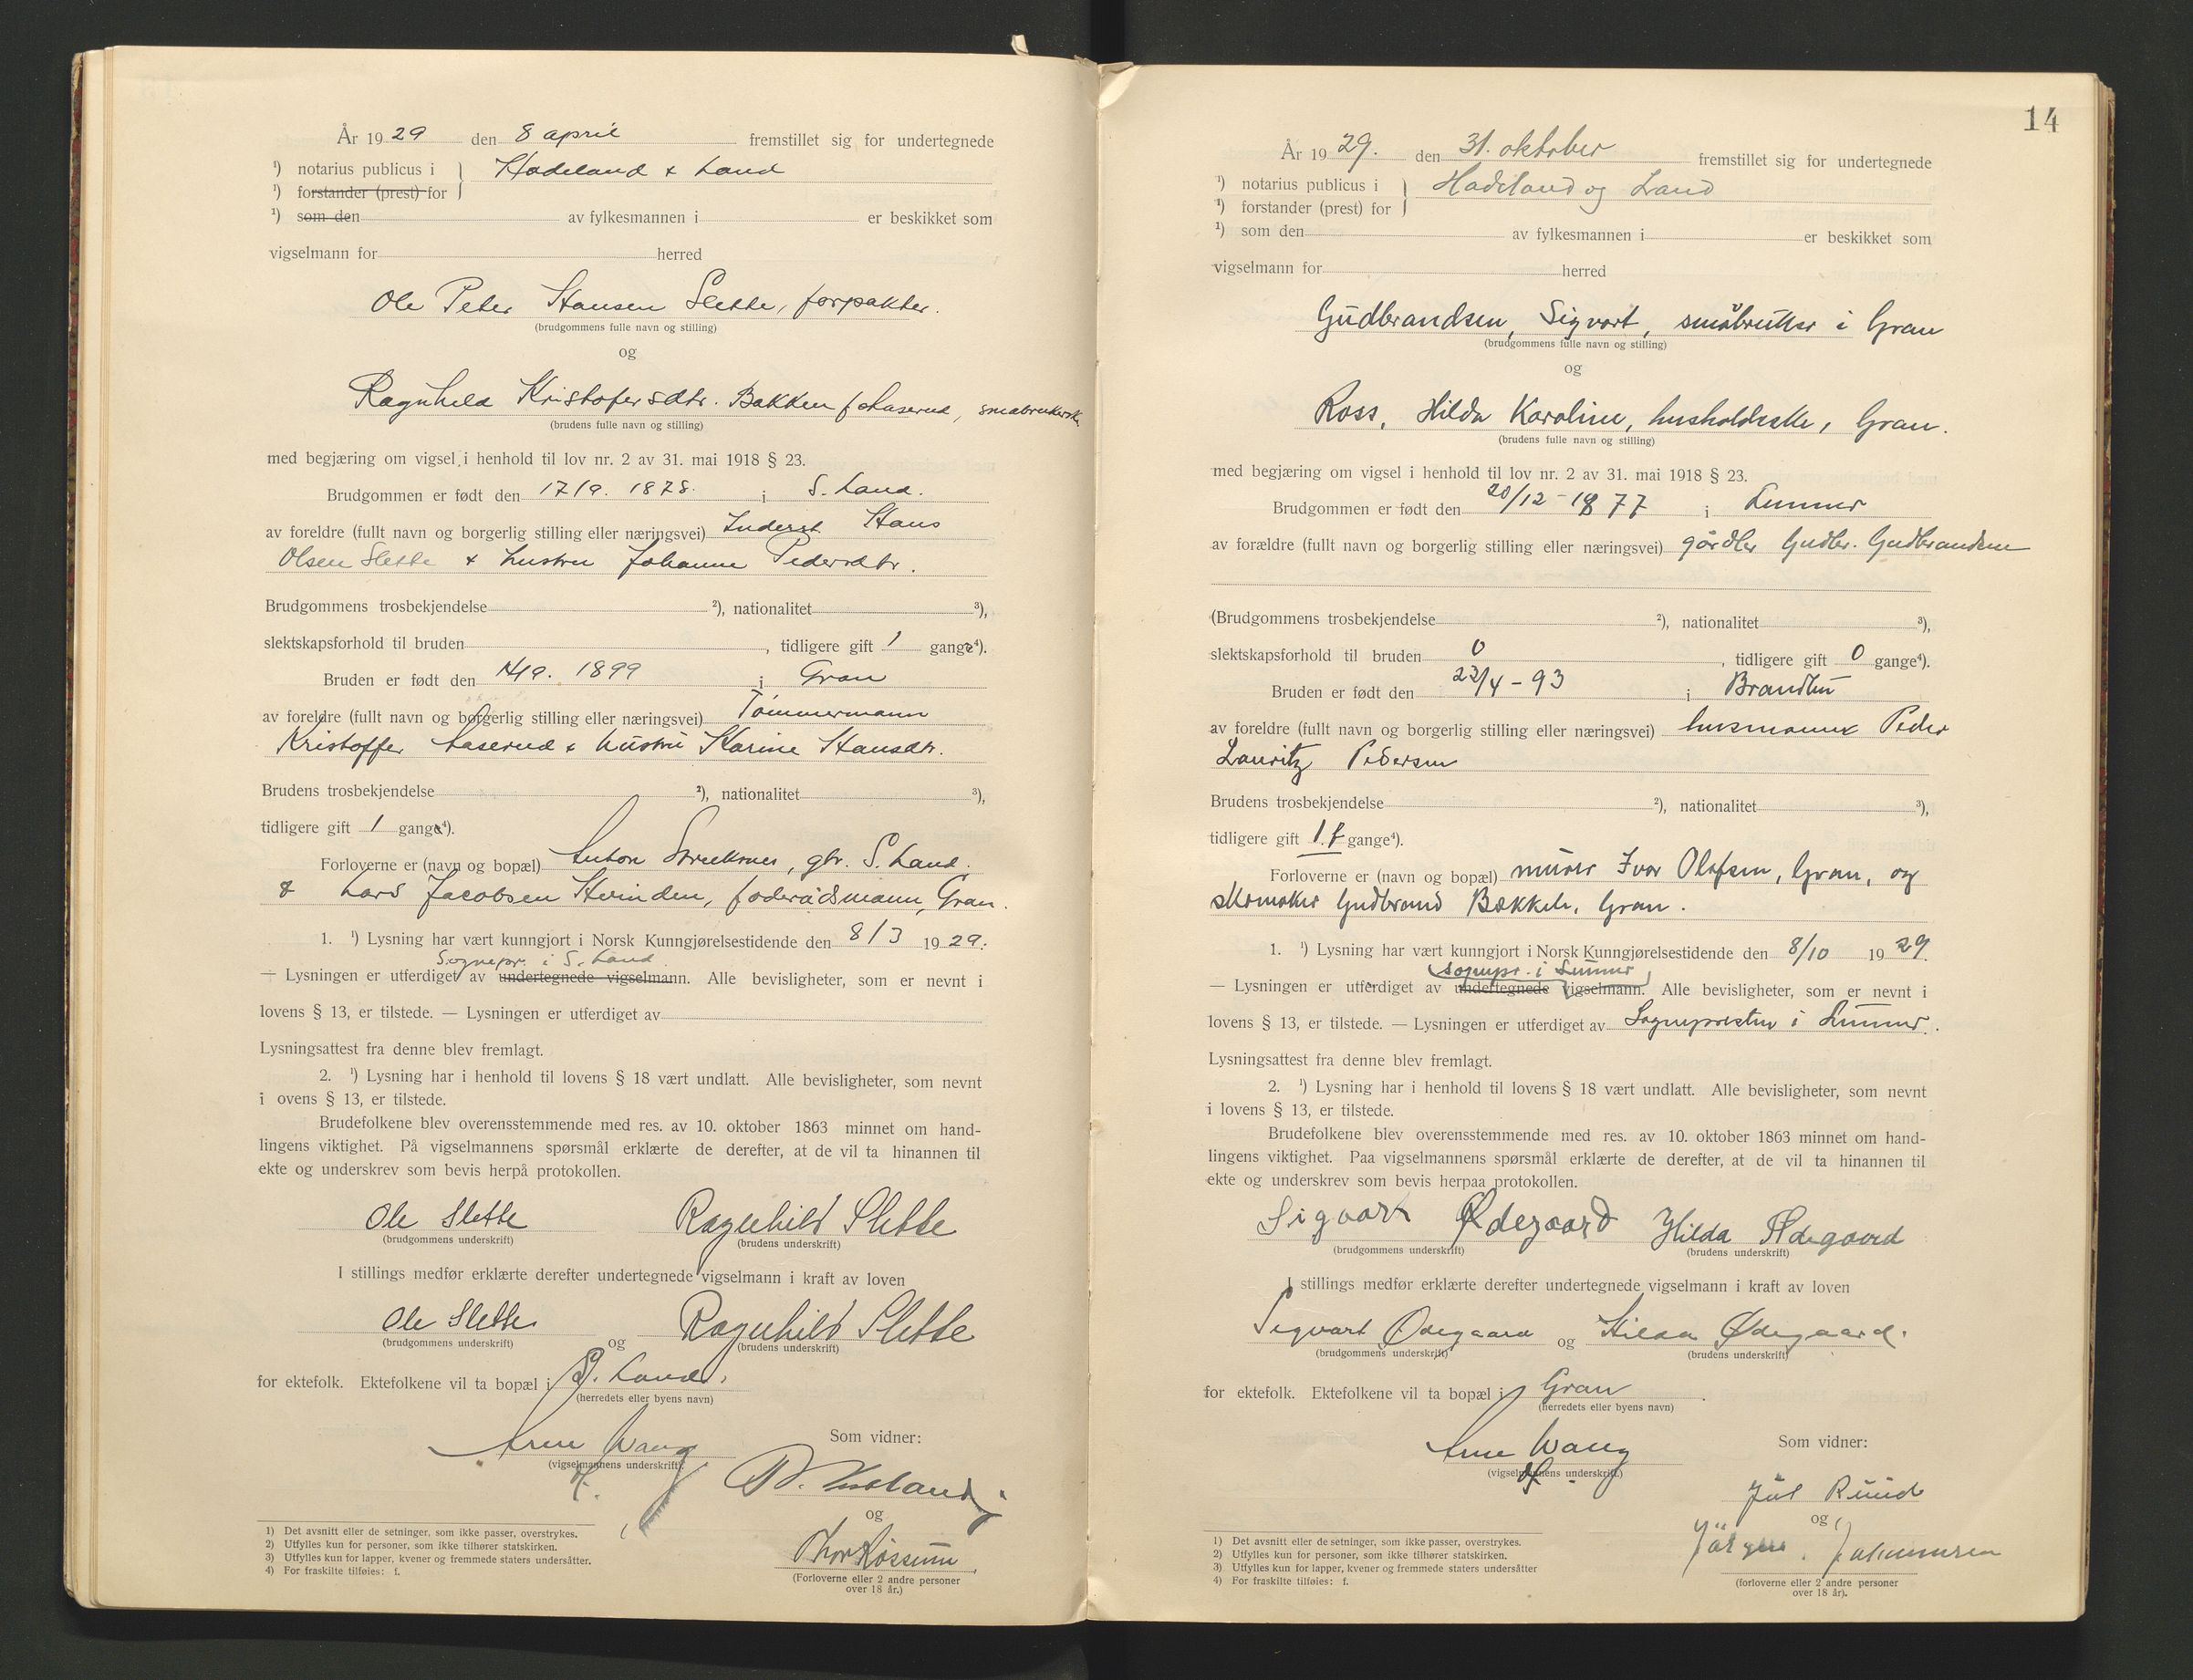 År 1929 den 8 april fremstillet sig for undertegnede
¹) notarius publicus i } Hadeland & Land
¹) forstander (prest) for
¹) som den av fylkesmannen i er beskikket som
vigselmann for herred
Ole Peter Hansen Slette, forpakter.
(brudgommens fulle navn og stilling)
og
Ragnhild Kristofersdtr. Bakken f. Haserud, småbrukerske
(brudens fulle navn og stilling)
med begjæring om vigsel i henhold til lov nr. 2 av 31. mai 1918 § 23.
Brudgommen er født den 17/9. 1878. i S. Land.
av foreldre (fullt navn og borgerlig stilling eller næringsvei) Inderst Hans
Olsen Slette & hustru Johanne Pedersdtr.
Brudgommens trosbekjendelse ²), nationalitet ³),
slektskapsforhold til bruden , tidligere gift 1 gange⁴).
Bruden er født den 1899 i Gran
av foreldre (fullt navn og borgerlig stilling eller næringsvei) Tømmermann
Kristoffer Haserud & hustru Karine Hansdtr.
Brudens trosbekjendelse ²), nationalitet ³),
tidligere gift 1 gange⁴).
Forloverne er (navn og bopæl) Anton gbr. S. Land.
& Lars Jacobsen Hvinden,føderådsmann, Gran.
1. ¹) Lysning har vært kunngjort i Norsk Kunngjørelsestidende den 8/3 1929.
Sognepr. i S. Land
— Lysningen er utferdiget av undertegnede vigselmann. Alle bevisligheter, som er nevnt i
lovens § 13, er tilstede. — Lysningen er utferdiget av
Lysningsattest fra denne blev fremlagt.
2. ¹) Lysning har i henhold til lovens § 18 vært undlatt. Alle bevisligheter, som nevnt
i ovens § 13, er tilstede.
Brudefolkene blev overensstemmende med res. av 10. oktober 1863 minnet om hand-
lingens viktighet. På vigselmannens spørsmål erklærte de derefter, at de vil ta hinannen til
ekte og underskrev som bevis herpå protokollen.
Ole Slette Ragnhild Slette
(brudgommens underskrift) (brudens underskrift)
I stillings medfør erklærte derefter undertegnede vigselmann i kraft av loven
Ole Slette og Ragnhild Slette
(brudgommens underskrift) (brudens underskrift)
for ektefolk. Ektefolkene vil ta bopæl i S. Land.
(herredets eller byens navn)
Arne Wang
(vigselmannens underskrift)
Som vidner:
og
Thor Røssum
(Forloverne eller 2 andre personer
over 18 år.)
1) Det avsnitt eller de setninger, som ikke passer, overstrykes.
2) Utfylles kun for personer, som ikke tilhører statskirken.
3) Utfylles kun for lapper, kvener og fremmede staters undersåtter.
4) For fraskilte tilføies: f.
14
År 1929. den 31. oktober fremstillet sig for undertegnede
¹) notarius publicus i } Hadeland og Land
¹) forstander (prest) for
¹) som den av fylkesmannen i er beskikket som
vigselmann for herred
Gudbrandsen, Sigvart, småbruker i Gran
(brudgommens fulle navn og stilling)
og
Ross, Hilda Karoline, husholderske, Gran.
(brudens fulle navn og stilling)
med begjæring om vigsel i henhold til lov nr. 2 av 31. mai 1918 § 23.
Brudgommen er født den 20/12 - 1877 i Lunner
av forældre (fullt navn og borgerlig stilling eller næringsvei) gårdbr Gudbr. Gudbrandsen
(Brudgommens trosbekjendelse ²), nationalitet ³),
slektskapsforhold til bruden 0 , tidligere gift 0 gange⁴).
Bruden er født den 23/4 - 93 i Brandbu
av foreldre (fullt navn og borgerlig stilling eller næringsvei) husmann Peder
Lauritz Pedersen
Brudens trosbekjendelse ²), nationalitet ³),
tidligere gift 1 f gange⁴).
Forloverne er (navn og bopæl) murer Ivar Olafsen, Gran, og
skomaker Gudbrand Bækken, Gran.
1. ¹) Lysning har vært kunngjort i Norsk Kunngjørelsestidende den 8/10 1929.
(sognepr. i Lunner)
— Lysningen er utferdiget av undertegnede vigselmann. Alle bevisligheter, som er nevnt i
lovens § 13, er tilstede. — Lysningen er utferdiget av Sognepresten i Lunner.
Lysningsattest fra denne blev fremlagt.
2. ¹) Lysning har i henhold til lovens § 18 vært undlatt. Alle bevisligheter, som nevnt
i lovens § 13, er tilstede.
Brudefolkene blev overensstemmende med res. av 10. oktober 1863 minnet om hand-
lingens viktighet. Paa vigselmannens spørsmål erklærte de derefter, at de vil ta hinannen til
ekte og underskrev som bevis herpaa protokollen.
Sigvart Ødegaard Hilda Ødegaard
(brudgommens underskrift) (brudens underskrift)
I stillings medfør erklærte derefter undertegnede vigselmann i kraft av loven
Sigvart Ødegaard og Hilda Ødegaard.
(brudgommens underskrift) (brudens underskrift)
for ektefolk. Ektefolkene vil ta bopæl i Gran
(herredets eller byens navn)
Arne Wang
(vigselmannens underskrift)
Som vidner:
Jul Ruud
og
Jörgen Johannesen
(forloverne eller 2 andre personer
over 18 år).
1) Det avsnitt eller de setninger, som ikke passer, overstrykes.
2) Utfylles kun for personer, som ikke tilhører statskirken.
3) Utfylles kun for lapper, kvener og fremmede staters undersåtter
4) For fraskilte tilføies: f.